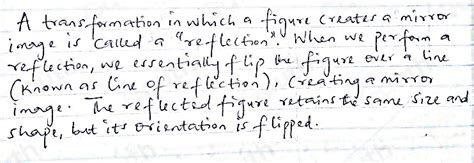 A transformation in which a figure creates a mirror
image is called a "reflection". When we perform a
reflection, we essentially flip the figure over a line
(known as line of reflection), creating a mirror
image. The reflected figure retains the same size and
shape, but its orientation is flipped.